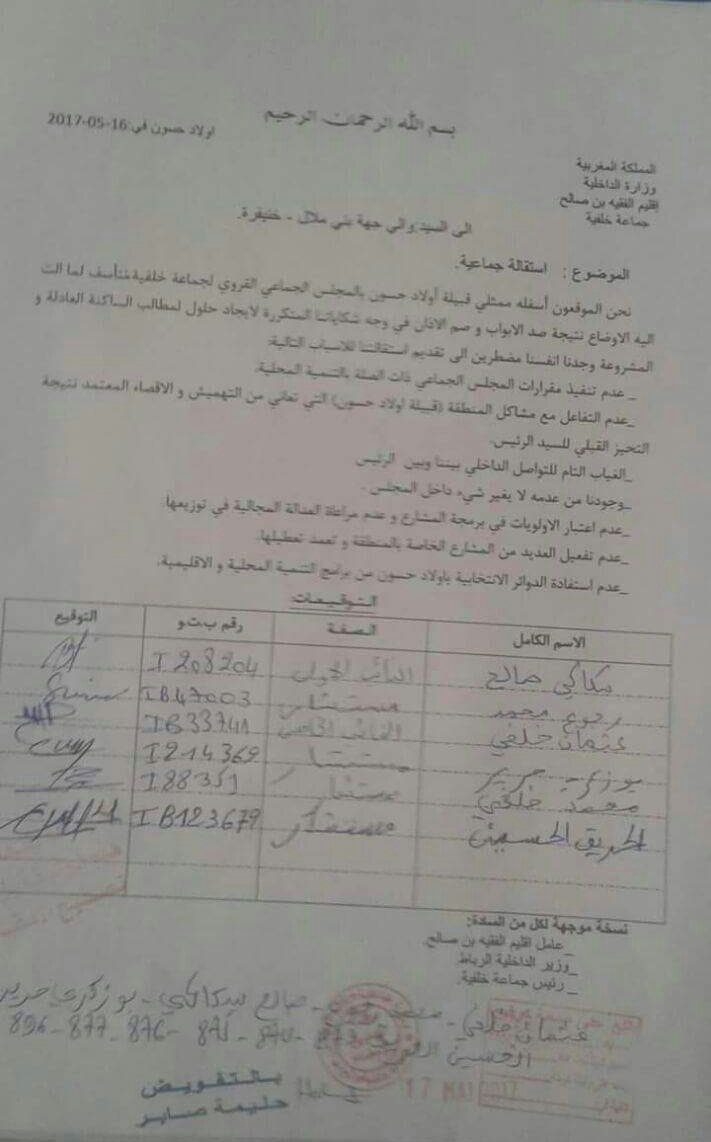 بسم الله الرحمان الرحيم
اولاد حسون في:16-05-2017
المملكة المغربية
وزارة الداخلية
إقليم الفقيه بن صالح
جماعة خلفية
الى السيد والي جهة بني ملال - خنيفرة.
الموضوع : استقالة جماعية.
نحن الموقعون أسفله ممثلي قبيلة أولاد حسون بالمجلس الجماعي القروي لجماعة خلفية نتأسف لما الت
اليه الاوضاع نتيجة صد الابواب و صم الاذان في وجه شكاياتنا المتكررة لايجاد حلول لمطالب الساكنة العادلة و
المشروعة وجدنا انفسنا مضطرين الى تقديم استقالتنا للاسباب التالية:
_ عدم تنفيذ مقرارات المجلس الجماعي ذات الصلة بالتنمية المحلية.
_عدم التفاعل مع مشاكل المنطقة (قبيلة اولاد حسون) التي تعاني من التهميش و الاقصاء المعتمد نتيجة
التحيز القبلي للسيد الرئيس.
_الغياب التام للتواصل الداخلي بيننا وبين الرئيس
_وجودنا من عدمه لا يغير شيء داخل المجلس .
_عدم اعتبار الاولويات في برمجة المشارع و عدم مراعاة العدالة المجالية في توزيعها.
_عدم تفعيل العديد من المشارع الخاصة بالمنطقة و تعمد تعطيلها.
_عدم استفادة الدوائر الانتخابية باولاد حسون من برامج التنمية المحلية و الاقليمية.
التوقيعات:
الاسم الكامل الصفة رقم ب.ت.و التوقيع
صالح I 208204
رجوع محمد مستشار IB47003
عثمان خلفي IB33741
مستشار I 214369
محمد خلفي مستشار I88351
الحسين مستشار IB123679
نسخة موجهة لكل من السادة:
_ عامل اقليم الفقيه بن صالح.
_ وزير الداخلية الرباط
_ رئيس جماعة خلفية.
عثمان خلفي - محمد - صالح - بوزكري
896 - 877 - 876 - 871 - 870
بالتفويض
حليمة صابر
17 MAI 2017